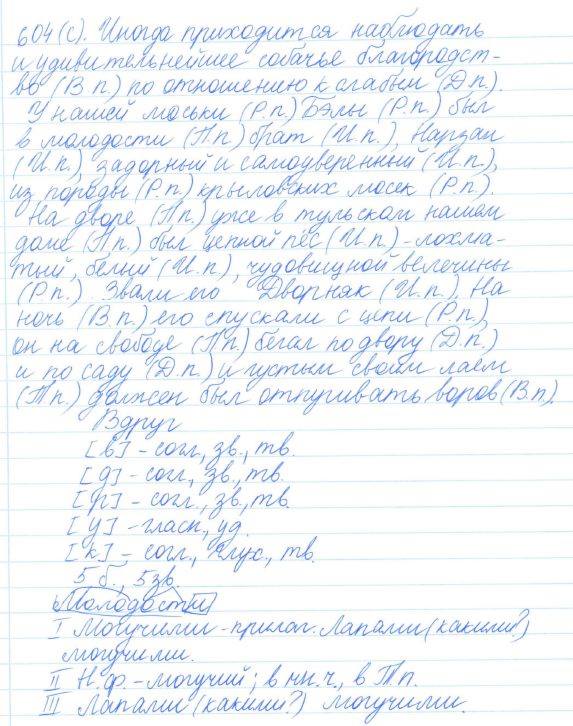 604(с). Иногда приходится наблюдать
и удивительнейшее собачье благородст-
во (В.п.) по отношению к слабым (Д.п.).
У нашей моськи (Р.п.) Бэлы (Р.п.) был
в молодости (П.п.) брат (И.п.), Нарзан
(И.п.), задорный и самоуверенный (И.п.),
из породы (Р.п.) крыловских мосек (Р.п.).
На дворе (П.п.) уже в тульском нашем
доме (П.п.) был цепной пёс (И.п.) - лохма-
тый, белый (И.п.), чудовищной велечины
(Р.п.). Звали его Дворняк (И.п.). На
ночь (В.п.) его спускали с цепи (Р.п.),
он на свободе (П.п.) бегал по двору (Д.п.)
и по саду (Д.п.) и густым своим лаем
(Т.п.) должен был отпугивать воров (В.п).
Вдруг
[в] - согл., зв., тв.
[д] - согл., зв., тв.
[р] - согл., зв., тв.
[у] - гласн., уд.
[к] - согл., глух., тв.
5 б., 5 зв.
Молодости
I Могучими - прилаг. Лапами (какими?)
могучими.
II Н.ф. - могучий; в мн.ч., в Т.п.
III Лапами (какими?) могучими.